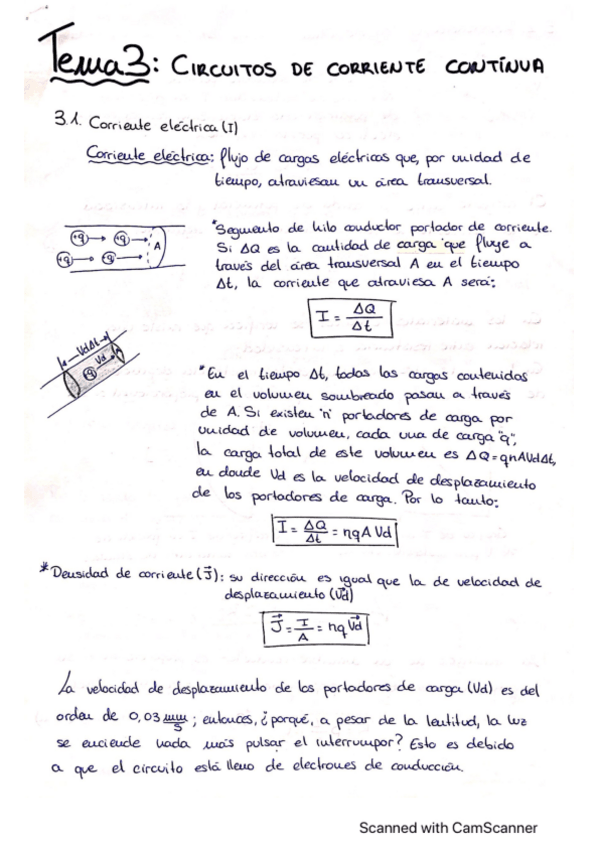 Tema 3: CIRCUITOS DE CORRIENTE CONTÍNUA
3.1. Corriente eléctrica (I)
Corriente eléctrica: flujo de cargas eléctricas que, por unidad de
tiempo, atraviesan un área transversal.
*Segmento de hilo conductor portador de corriente.
Si ΔQ es la cantidad de carga que fluye a
través del área transversal A en el tiempo
Δt, la corriente que atraviesa A será:
+q +q A
+q +q
I = ΔQ/Δt
VdΔt
+q Vd
*En el tiempo Δt, todas las cargas contenidas
en el volumen sombreado pasan a través
de A. Si existen "n" portadores de carga por
unidad de volumen, cada una de carga "q",
la carga total de este volumen es ΔQ=qnAVdΔt,
en donde Vd es la velocidad de desplazamiento
de los portadores de carga. Por lo tanto:
I = ΔQ/Δt = nqA Vd
*Densidad de corriente (J⃗): su dirección es igual que la de velocidad de
desplazamiento (V⃗d)
J⃗ = I/A = nq V⃗d
La velocidad de desplazamiento de los portadores de carga (Vd) es del
orden de 0,03 mm/s; entonces, ¿porqué, a pesar de la lentitud, la luz
se enciende nada más pulsar el interrumpor? Esto es debido
a que el circuito está lleno de electrones de conducción.
Scanned with CamScanner